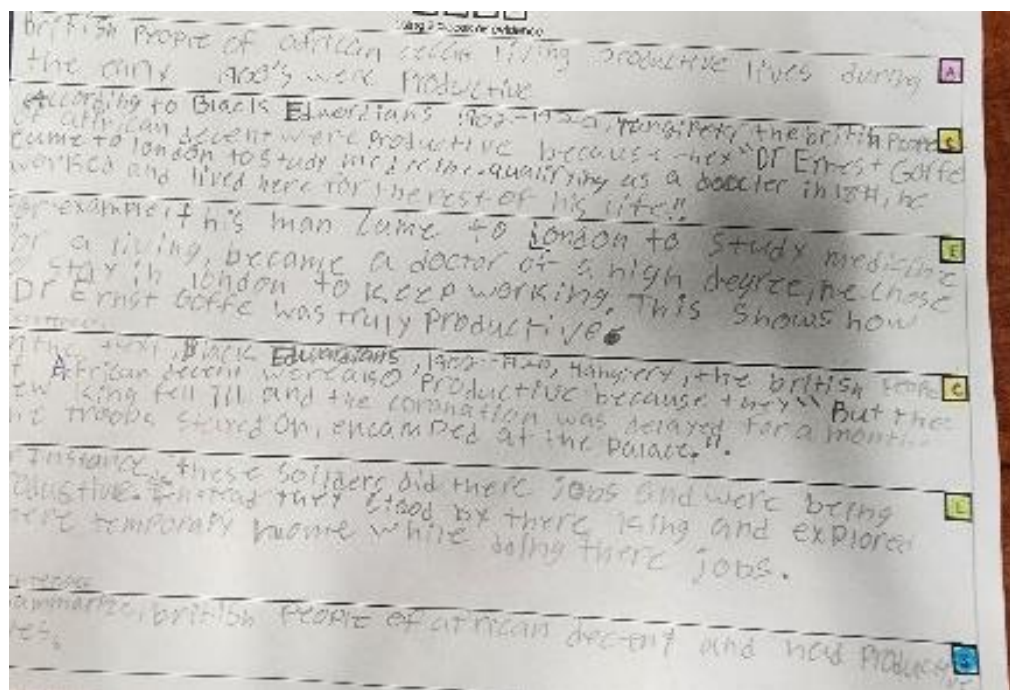 using 2 pieces of evidence
British People of african living productive lives during A
the early 1900's were Productive
According to Black Edwardians 1902-1920, the british People C
of african decent were productive because they "Dr Ernest Goffe
came to london to study medicine. qualifying as a in he
worked and lived here for the rest of his life!!
For example, this man came to London to study medicine E
for a living, became a doctor of a high degree, he chose
to stay in london to keep working. This shows how
Dr Ernst Goffe was truly productive.
In the text, Black Edwardians, 1902-1920, the british People C
of African decent were also productive because they "But the
new king fell Ill and the coronation was delayed for a month
the troobs stayed On, encamped at the palace.".
Instance, these did there jobs and were being E
they stood by there king and explored
there temporary while doing there jobs.
Summarize, british People of african decent and Productive S